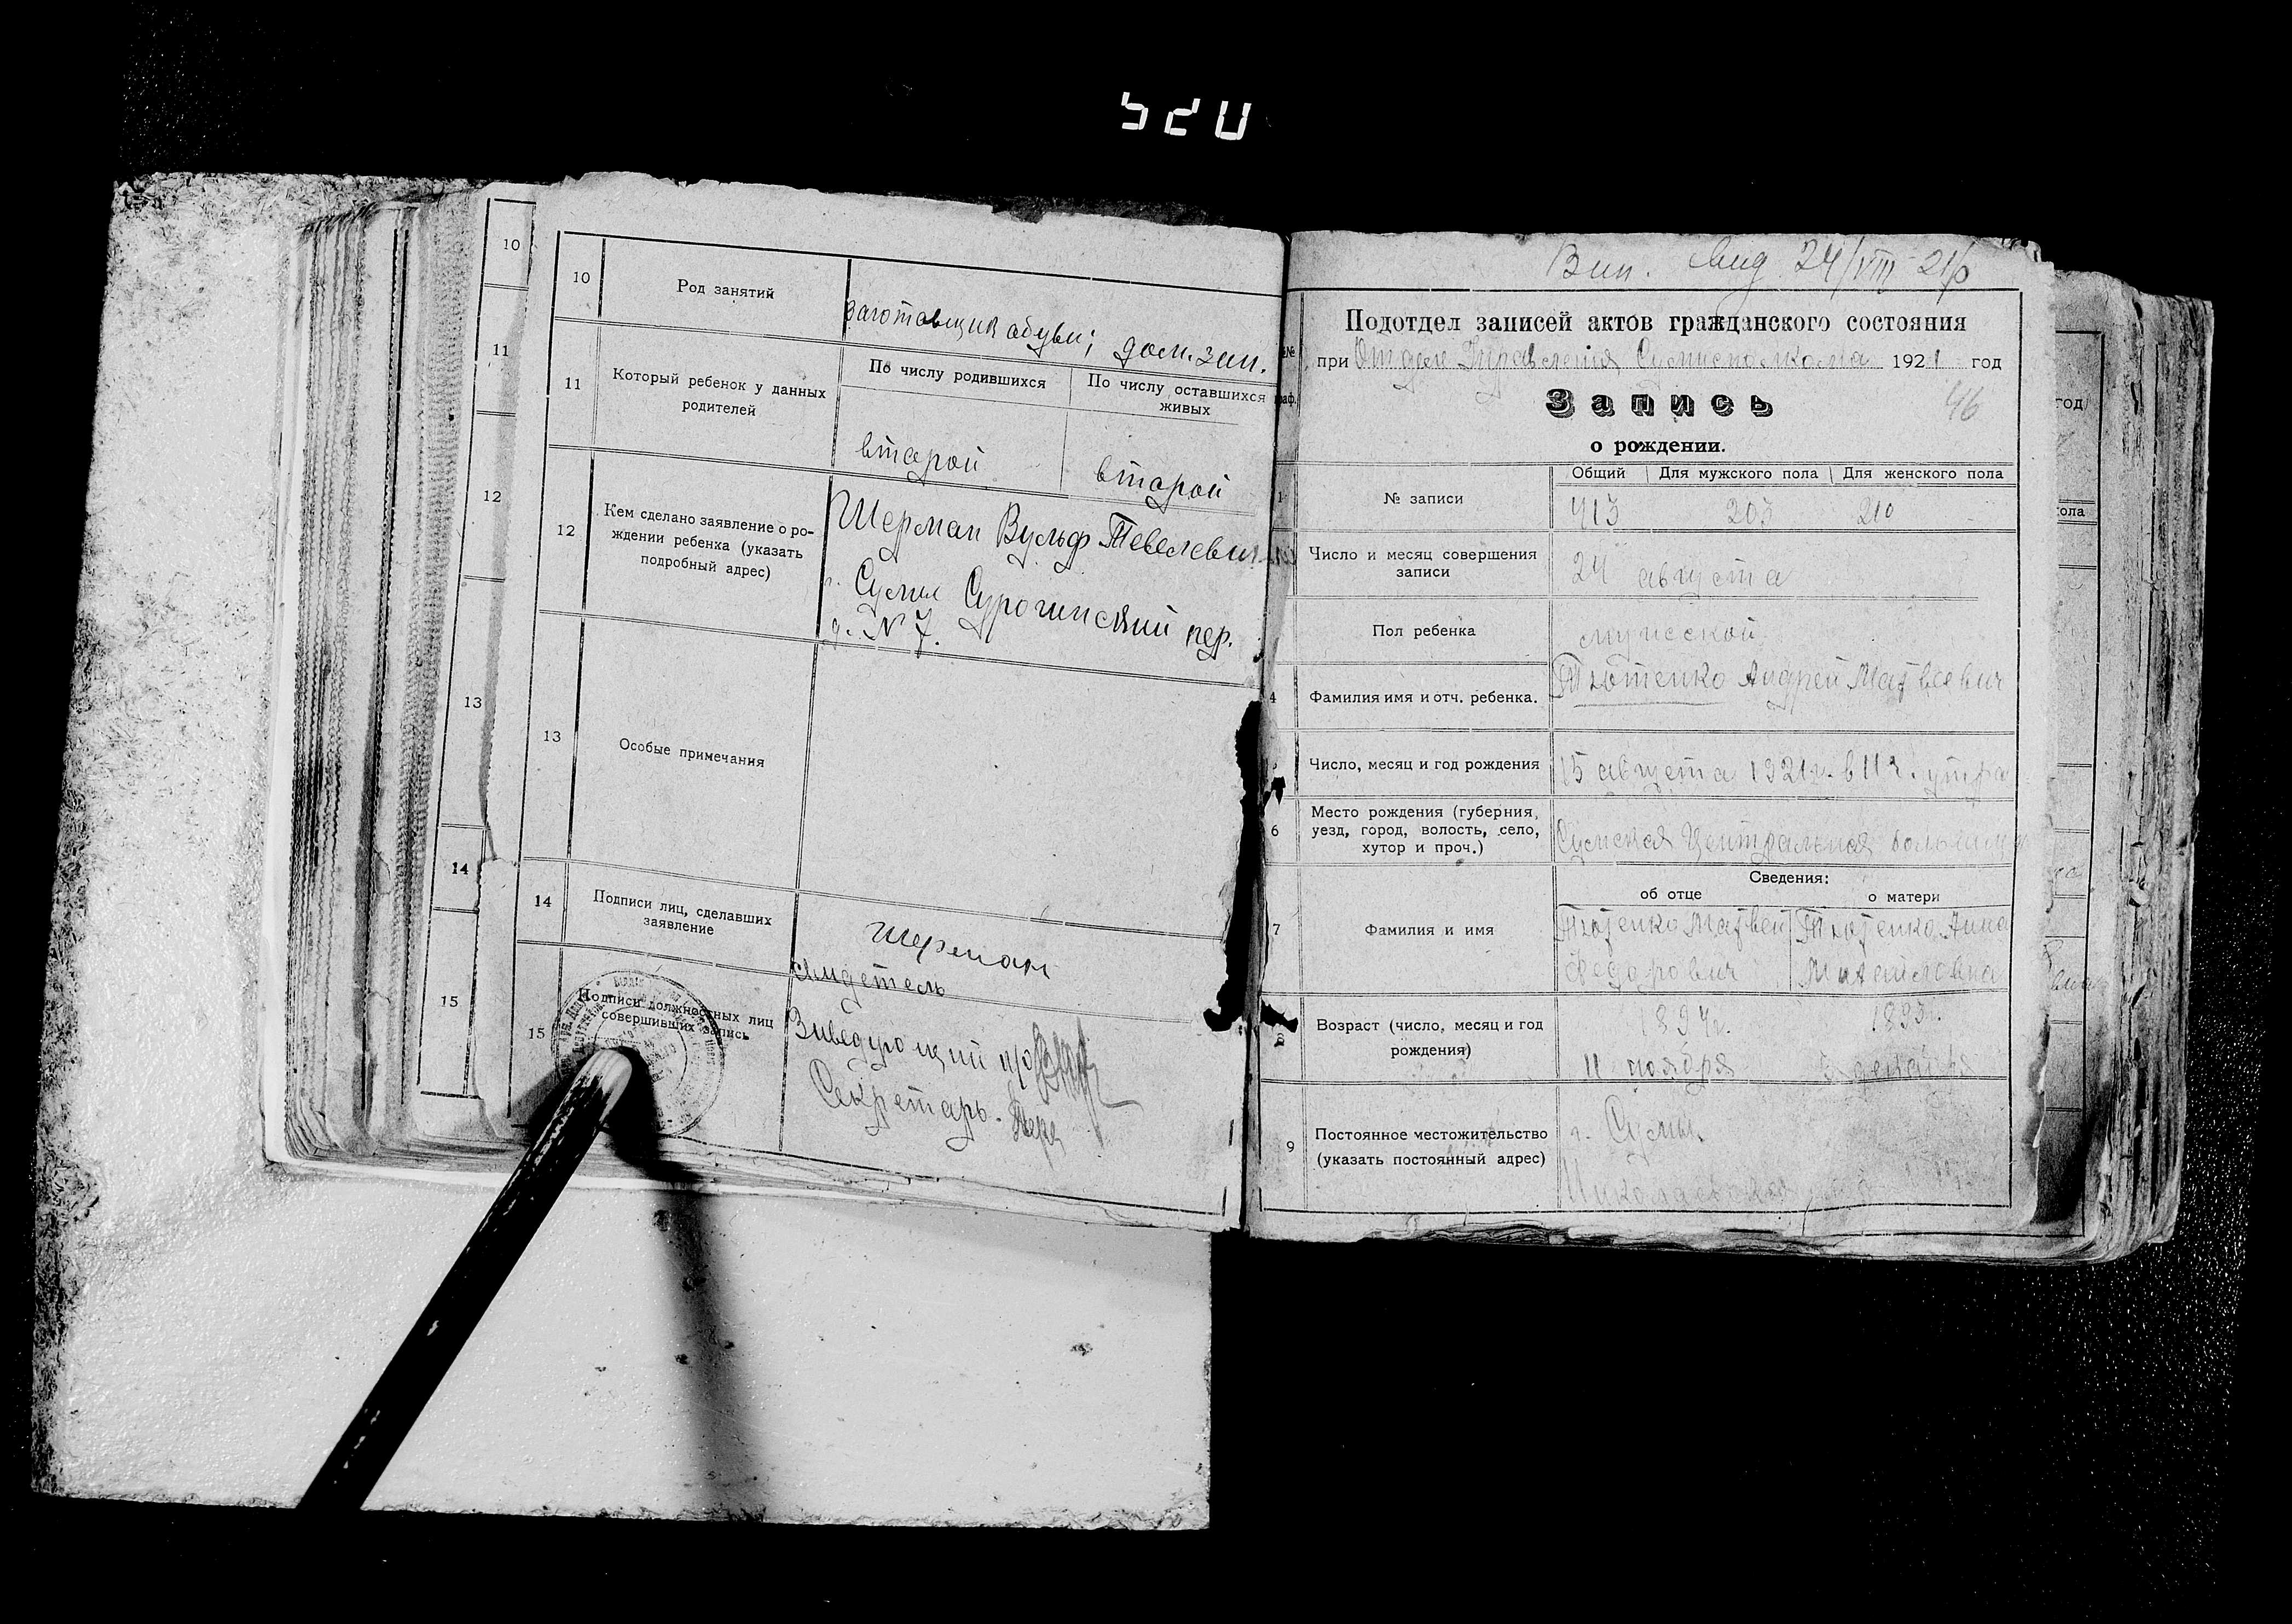 520
10
11
12
13
14
15
10
Род занятий
заготовщик обуви; дом. зан.
11
Который ребенок у данных
родителей
По числу родившихся
По числу оставшихся
живых
второй
второй
12
Кем сделано заявление о ро-
ждении ребенка (указать
подробный адрес)
Шерман Вульф Тевелевич
г. Сумы Сурогинский пер.
д. № 7.
13
Особые примечания
14
Подписи лиц, сделавших
заявление
Шерман
свидетель
15
Подписи должностных лиц
совершивших запись
Заведующий п/о
Секретарь.
Вып. 24/VIII-21
Подотдел записей актов гражданского состояния
при Отделе Управления Сумисполкома 1921 год
Запись
46
о рождении.
№ записи
Общий Для мужского пола Для женского пола
413 203 210
Число и месяц совершения
записи
24 августа
Пол ребенка
мужской
4
Фамилия имя и отч. ребенка.
Тютенко Андрей Матвеевич
Число, месяц и год рождения
15 августа 1921 г. в 11 ч. утра
6
Место рождения (губерния,
уезд, город, волость, село,
хутор и проч.)
Сумская Центральная больница
Сведения:
об отце о матери
7
Фамилия и имя
Тютенко Матвей
Федорович
Тютенко Анна
8
Возраст (число, месяц и год
рождения)
1894 г.
11 ноября
1893 г.
декабря
9
Постоянное местожительство
(указать постоянный адрес)
г. Сумы
Николаевская
год
пола